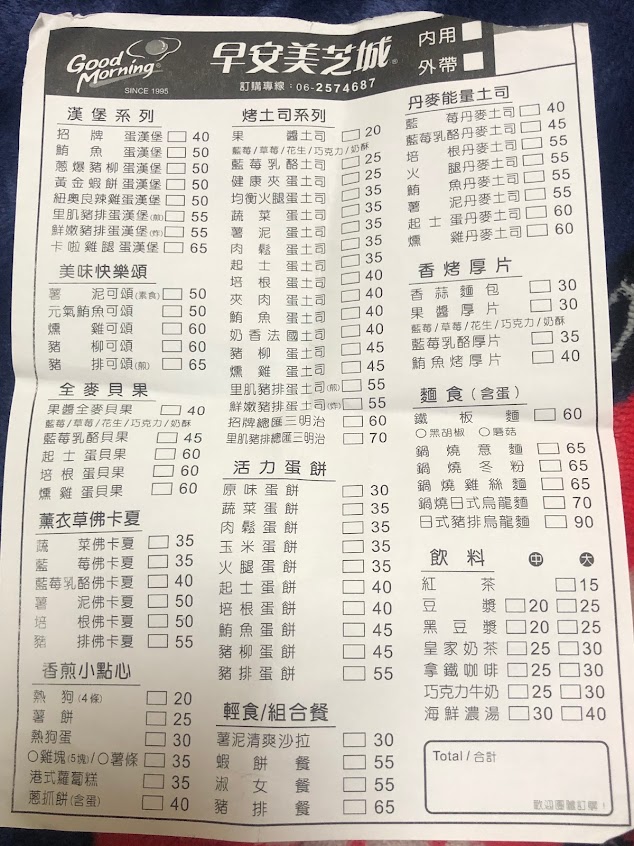 Good Morning®
SINCE 1995
早安美芝城®
訂購專線：06-2574687
內用 □
外帶 □
漢堡系列
招牌蛋漢堡 □ 40
鮪魚蛋漢堡 □ 50
蔥爆豬柳蛋漢堡 □ 50
黃金蝦餅蛋漢堡 □ 50
紐奧良辣雞蛋漢堡 □ 50
里肌豬排蛋漢堡(煎) □ 55
鮮嫩豬排蛋漢堡(炸) □ 55
卡啦雞腿蛋漢堡 □ 65
美味快樂頌
薯泥可頌(素食) □ 50
元氣鮪魚可頌 □ 50
燻雞可頌 □ 60
豬柳可頌 □ 60
豬排可頌(煎) □ 65
全麥貝果
果醬全麥貝果 □ 40
藍莓/草莓/花生/巧克力/奶酥
藍莓乳酪貝果 □ 45
起士蛋貝果 □ 60
培根蛋貝果 □ 60
燻雞蛋貝果 □ 60
薰衣草佛卡夏
蔬菜佛卡夏 □ 35
藍莓佛卡夏 □ 35
藍莓乳酪佛卡夏 □ 40
薯泥佛卡夏 □ 50
培根佛卡夏 □ 50
豬排佛卡夏 □ 55
香煎小點心
熱狗(4條) □ 20
薯餅 □ 25
熱狗蛋 □ 30
○雞塊(5塊)/○薯條 □ 35
港式蘿蔔糕 □ 35
蔥抓餅(含蛋) □ 40
烤土司系列
果醬土司 □ 20
藍莓/草莓/花生/巧克力/奶酥
藍莓乳酪土司 □ 25
健康夾蛋土司 □ 25
均衡火腿蛋土司 □ 35
蔬菜蛋土司 □ 35
薯泥蛋土司 □ 35
肉鬆蛋土司 □ 35
起士蛋土司 □ 35
培根蛋土司 □ 40
夾肉蛋土司 □ 40
鮪魚蛋土司 □ 40
奶香法國土司 □ 40
豬柳蛋土司 □ 45
燻雞蛋土司 □ 45
里肌豬排蛋土司(煎) □ 55
鮮嫩豬排蛋土司(炸) □ 55
招牌總匯三明治 □ 60
里肌豬排總匯三明治 □ 70
活力蛋餅
原味蛋餅 □ 30
蔬菜蛋餅 □ 35
肉鬆蛋餅 □ 35
玉米蛋餅 □ 35
火腿蛋餅 □ 35
起士蛋餅 □ 40
培根蛋餅 □ 40
鮪魚蛋餅 □ 45
豬柳蛋餅 □ 45
豬排蛋餅 □ 55
輕食/組合餐
薯泥清爽沙拉 □ 30
蝦餅餐 □ 55
淑女餐 □ 55
豬排餐 □ 65
丹麥能量土司
藍莓丹麥土司 □ 40
藍莓乳酪丹麥土司 □ 45
培根丹麥土司 □ 55
火腿丹麥土司 □ 55
鮪魚丹麥土司 □ 55
薯泥丹麥土司 □ 55
起士蛋丹麥土司 □ 60
燻雞丹麥土司 □ 60
香烤厚片
香蒜麵包 □ 30
果醬厚片 □ 30
藍莓/草莓/花生/巧克力/奶酥
藍莓乳酪厚片 □ 35
鮪魚烤厚片 □ 40
麵食(含蛋)
鐵板麵 □ 60
○黑胡椒 ○蘑菇
鍋燒意麵 □ 65
鍋燒冬粉 □ 65
鍋燒雞絲麵 □ 65
鍋燒日式烏龍麵 □ 70
日式豬排烏龍麵 □ 90
飲料 中 大
紅茶 □15
豆漿 □20 □25
黑豆漿 □20 □25
皇家奶茶 □25 □30
拿鐵咖啡 □25 □30
巧克力牛奶 □25 □30
海鮮濃湯 □30 □40
Total/合計
歡迎團體訂購！